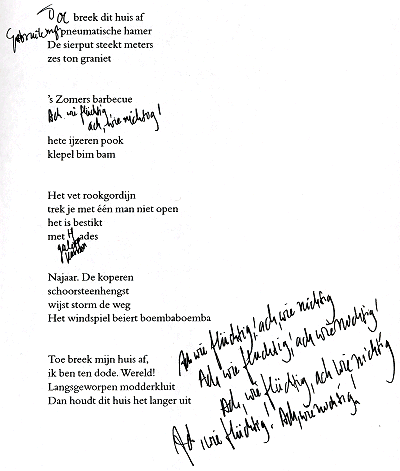 Toe breek dit huis af
pneumatische hamer
De sierput steekt meters
zes ton graniet
's Zomers barbecue
Ach wie flüchtig
ach, wie nichtig!
hete ijzeren pook
klepel bim bam
Het vet rookgordijn
trek je met één man niet open
het is bestikt
met ades
Najaar. De koperen
schoorsteenhengst
wijst storm de weg
Het windspiel beiert boembaboemba
Toe breek mijn huis af,
ik ben ten dode. Wereld!
Langsgeworpen modderkluit
Dan houdt dit huis het langer uit
Ach wie flüchtig! ach wie nichtig
Ach wie flüchtig! ach wie nichtig!
Ach, wie flüchtig, ach wie nichtig
Ach, wie flüchtig! Ach, wie nichtig!